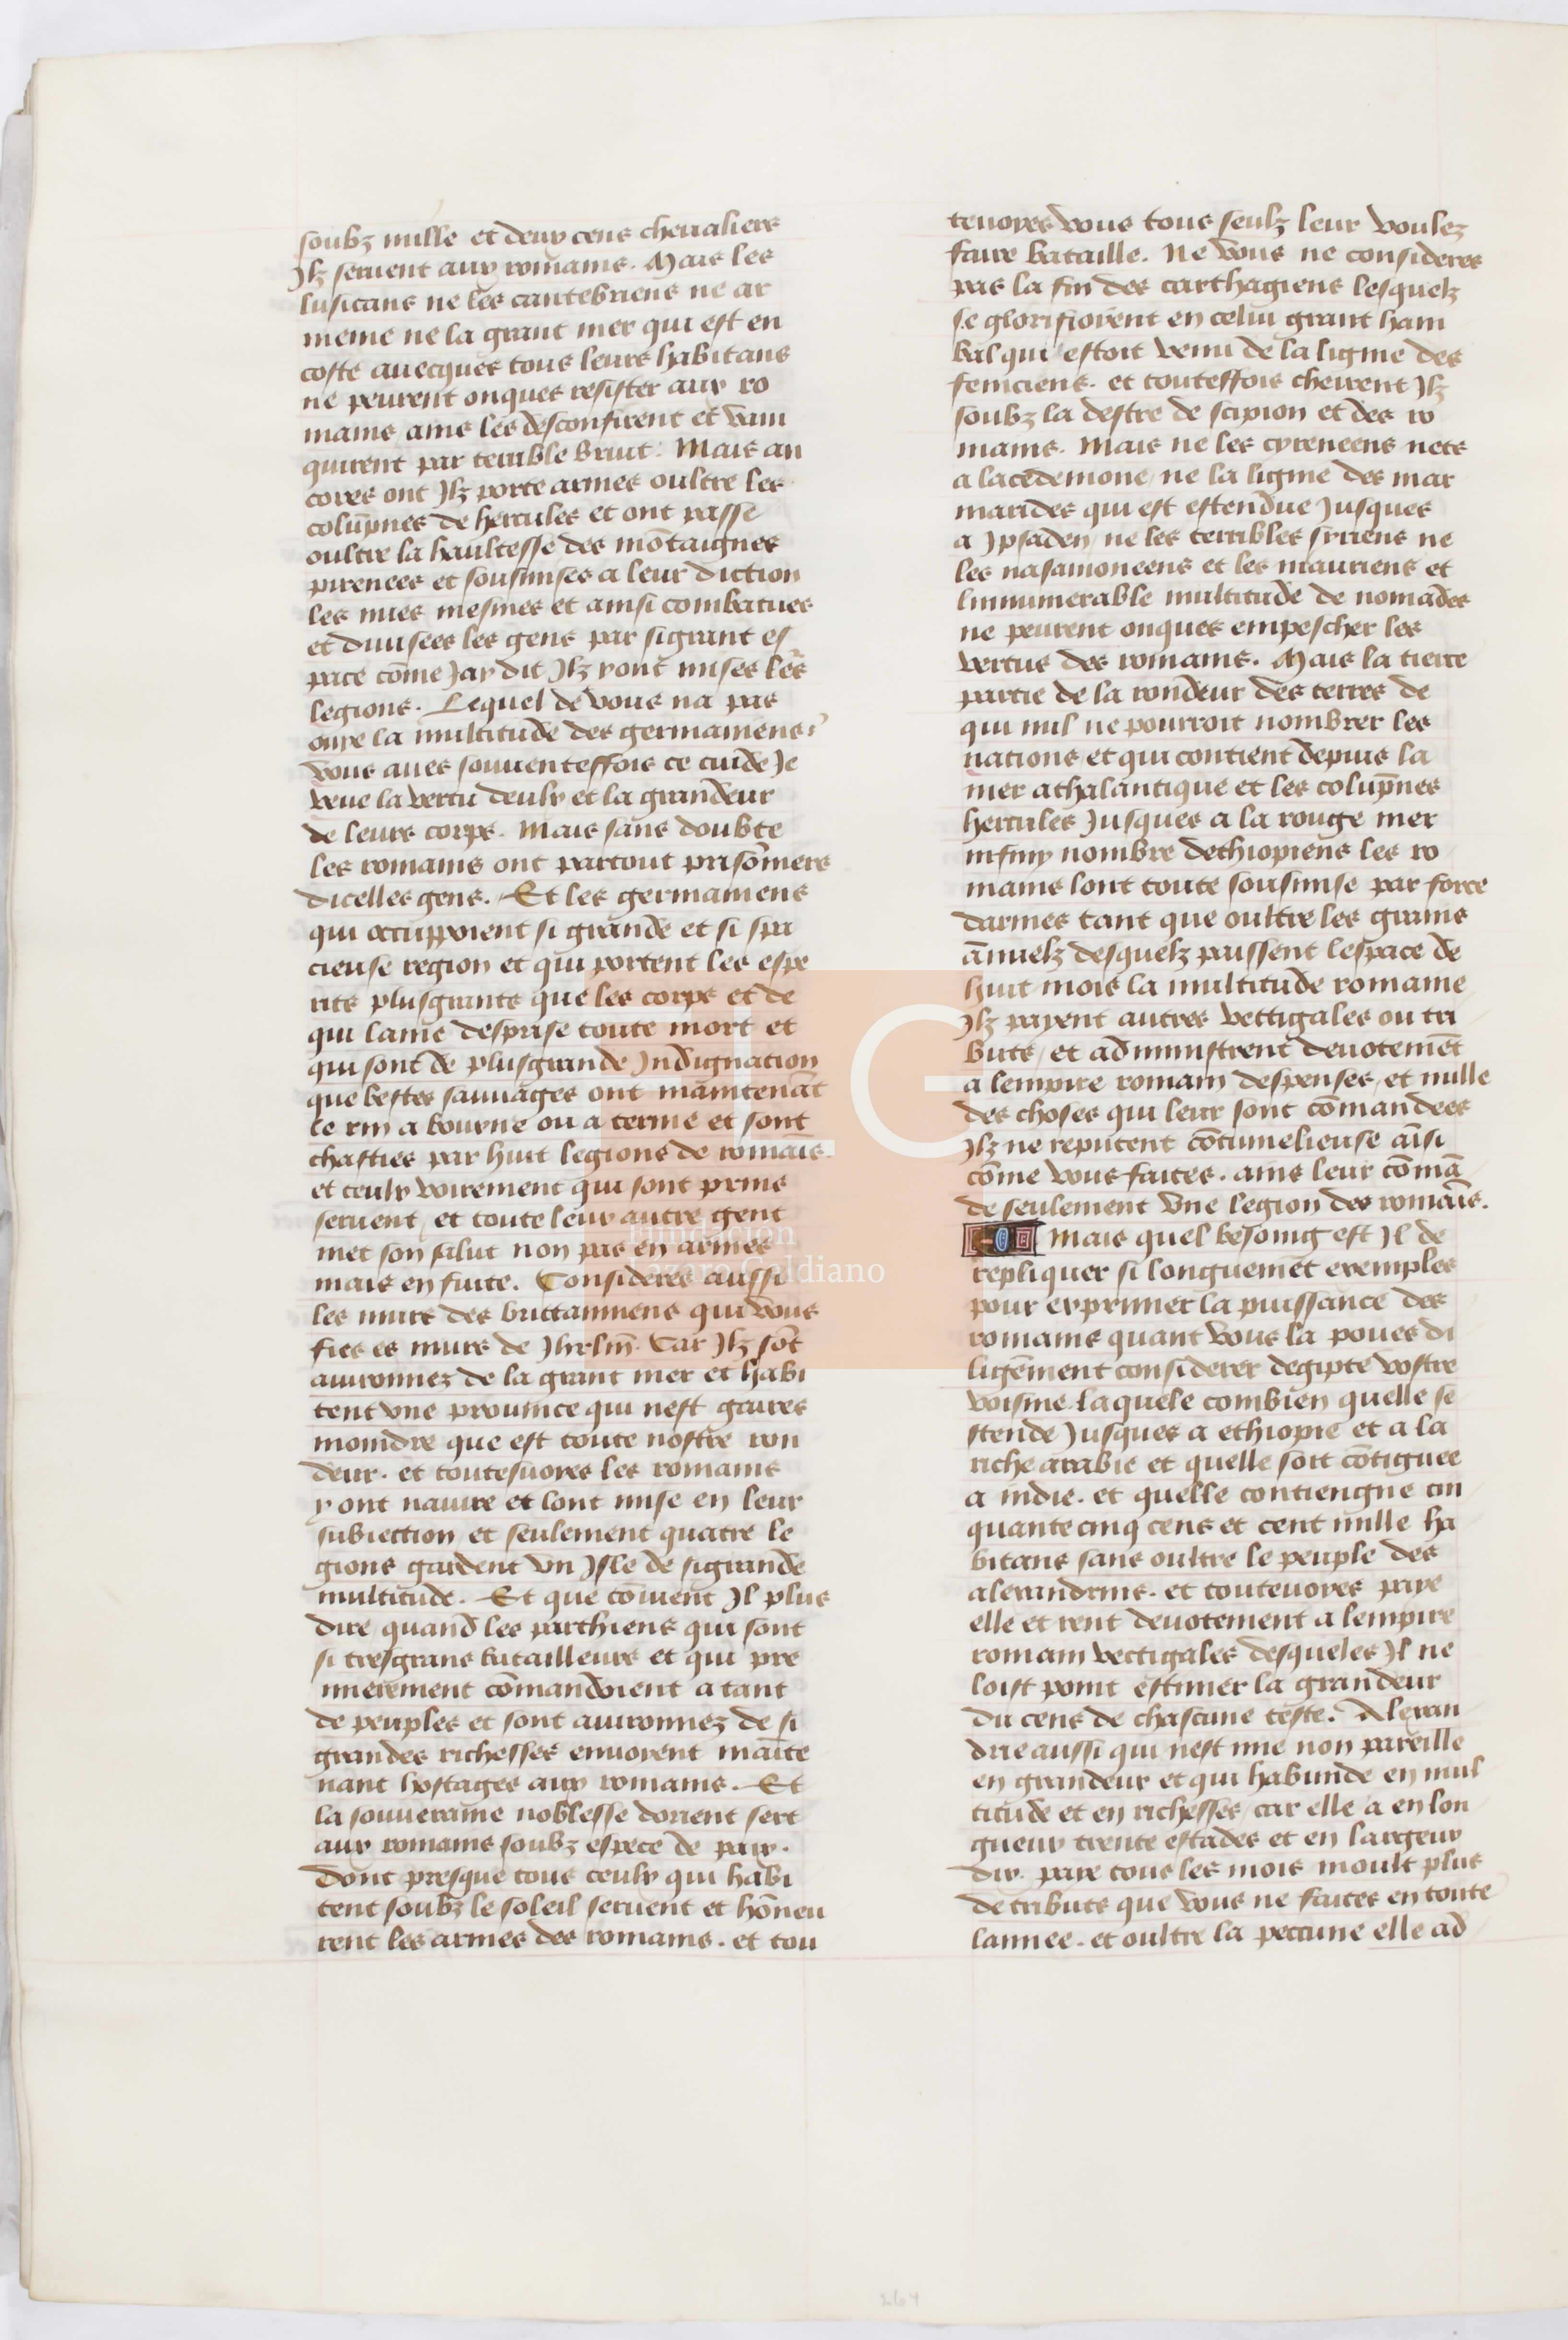 soubz mille et deux cens cheualiers
Ilz seruent aux romains. Mais les
lusitans ne les cantebriens ne ar
meme ne la grant mer qui est en
coste auecques tous leurs habitans
ne peurent onques resister aux ro
mains ains les desconfirent et vain
quirent par terrible bruit. Mais an
cores ont Ilz porte armes oultre les
colūpnes de hercules et ont passe
oultre la haultesse des mōtaignes
pirenees et sousmises a leur diction
les nues mesmes et ainsi combatues
et diuisees les gens par si grant es
pace cōme Jay dit Ilz y ont mises les
legions. Lequel de vous na pas
ouye la multitude des germaniens?
vous aues souuenteffois ce cuide Je
veue la vertu deulx et la grandeur
de leurs corps. Mais sans doubte
les romains ont partout prisōniers
dicelles gens. Et les germaniens
qui occuppoient si grande et si spa
cieuse region et qui portent les espe
rits plusgrants que les corps et de
qui lame desprise toute mort et
qui sont de plusgrande Indignation
que bestes sauuages ont maintenāt
le rin a bourne ou a terme et sont
chasties par huit legions de romaīs.
et ceulx voirement qui sont prins
seruent, et toute leur autre gent
met son salut non pas en armes
mais en fuite. Consideres aussi
les murs des brittanniens qui vous
fies es murs de Jhrlm̄. Car Ilz sōt
auironnez de la grant mer et habi
tent vne prouince qui nest gaires
moindre que est toute nostre ron
deur. et toutesuoyes les romains
y ont nauire et lont mise en leur
subiection et seulement quatre le
gions gardent vn Isle de si grande
multitude. Et que cōuient Il plus
dire quand les parthiens qui sont
si tresgrans batailleurs et qui pre
mierement cōmandoient a tant
de peuples et sont auironnez de si
grandes richesses enuoyent maīte
nant hostages aux romains. Et
la souueraine noblesse dorient sert
aux romains soubz espece de paix.
Dont presque tous ceulx qui habi
tent soubz le soleil seruent et hōneu
rent les armes des romains. et tou
tenoyes vous tous seulz leur voulez
faire bataille. Ne vous ne consideres
pas la fin des carthagiens lesquelz
se glorifioyent en celui grant hani
bal qui estoit venu de la ligne des
feniciens. et touteffois cheirent Ilz
soubz la destre de scipion et des ro
mains. Mais ne les cyreneens nets
a lacedemone, ne la ligne des mar
marides qui est estendue Jusques
a Ipsaden, ne les terribles syriens ne
les nasamoneens et les mauriens et
linnumerable multitude de nomades
ne peurent onques empescher les
vertus des romains. Mais la tierce
partie de la rondeur des terres de
qui nul ne pourroit nombrer les
nations et qui contient depuis la
mer athalantique et les colūpnes
hercules Jusques a la rouge mer
infiny nombre dethiopiens les ro
mains lont toute sousmise par force
darmes tant que oultre les grains
ānuelz desquelz paissent lespace de
huit mois la multitude romaine
Ilz payent autres vettigales ou tri
buts, et administrent deuotemēt
a lempire romain despenses, et nulle
des choses qui leur sont cōmandees
Ilz ne reputent cōtumelieuse aīsi
cōme vous faites. ains leur cōmā
de seulement vne legion des romaīs.
Mais quel besoing est Il de
repliquer si longuemēt exemples
pour exprimer la puissance des
romains quant vous la poues di
ligēment considerer degipte vostre
voisine. laquele combien quelle se
stende Jusques a ethiopie et a la
riche arabie et quelle soit cōtiguee
a indie. et quelle contiengne cin
quante cinq cens et cent mille ha
bitans sans oultre le peuple des
alexandrins. et toutenoyes paye
elle et rent deuotement a lempire
romain vectigales desqueles Il ne
loist point estimer la grandeur
du cens de chascune teste. Alexan
drie aussi qui nest mie non pareille
en grandeur et qui habunde en mul
titude et en richesses, car elle a en lon
gueur trente estades et en largeur
dix. paye tous les mois moult plus
de tributs que vous ne faites en toute
lannee. et oultre la peccune elle ad
LG
Fundación
Lázaro Galdiano
264